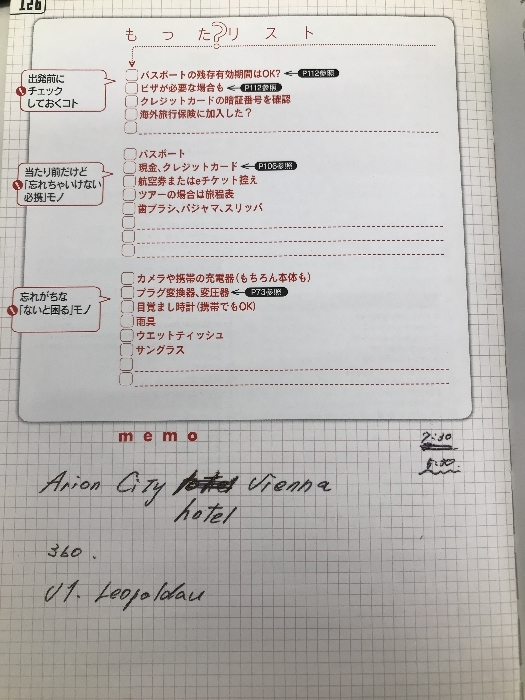 126
もった?リスト
出発前に
チェック
しておくコト
パスポートの残存有効期間はOK? P112参照
ビザが必要な場合も P112参照
クレジットカードの暗証番号を確認
海外旅行保険に加入した?
当たり前だけど
「忘れちゃいけない
必携」モノ
パスポート
現金、クレジットカード P106参照
航空券またはeチケット控え
ツアーの場合は旅程表
歯ブラシ、パジャマ、スリッパ
忘れがちな
「ないと困る」モノ
カメラや携帯の充電器(もちろん本体も)
プラグ変換器、変圧器 P73参照
目覚まし時計(携帯でもOK)
雨具
ウエットティッシュ
サングラス
memo
7:30
Arion City Vienna
hotel
360.
U1. Leopoldau